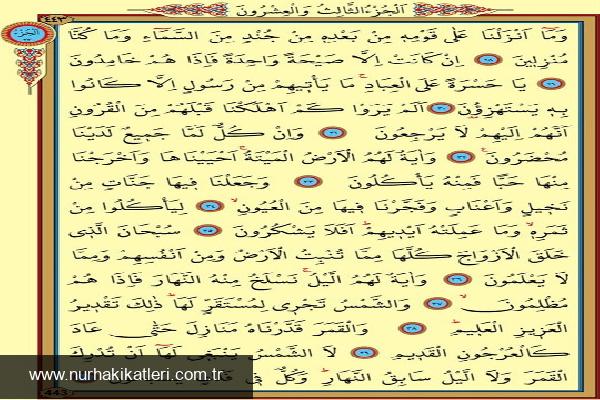 اَلْجُزْءُ الثَّالِثُ وَالْعِشْرُونَ
٤٤٣
اَلْجُزْءُ
وَمَٓا اَنْزَلْنَا عَلٰى قَوْمِه۪ مِنْ بَعْدِه۪ مِنْ جُنْدٍ مِنَ السَّمَٓاءِ وَمَا كُنَّا
مُنْزِل۪ينَ ﴿٢٨﴾ اِنْ كَانَتْ اِلَّا صَيْحَةً وَاحِدَةً فَاِذَا هُمْ خَامِدُونَ
﴿٢٩﴾ يَا حَسْرَةً عَلَى الْعِبَادِۚ مَا يَأْت۪يهِمْ مِنْ رَسُولٍ اِلَّا كَانُوا
بِه۪ يَسْتَهْزِؤُ۫نَ ﴿٣٠﴾ اَلَمْ يَرَوْا كَمْ اَهْلَكْنَا قَبْلَهُمْ مِنَ الْقُرُونِ
اَنَّهُمْ اِلَيْهِمْ لَا يَرْجِعُونَ ﴿٣١﴾ وَاِنْ كُلٌّ لَمَّا جَم۪يعٌ لَدَيْنَا
مُحْضَرُونَ۟ ﴿٣٢﴾ وَاٰيَةٌ لَهُمُ الْاَرْضُ الْمَيْتَةُۚ اَحْيَيْنَاهَا وَاَخْرَجْنَا
مِنْهَا حَبًّا فَمِنْهُ يَأْكُلُونَ ﴿٣٣﴾ وَجَعَلْنَا ف۪يهَا جَنَّاتٍ مِنْ
نَخ۪يلٍ وَاَعْنَابٍ وَفَجَّرْنَا ف۪يهَا مِنَ الْعُيُونِۙ ﴿٣٤﴾ لِيَأْكُلُوا مِنْ
ثَمَرِه۪ۙ وَمَا عَمِلَتْهُ اَيْد۪يهِمْۜ اَفَلَا يَشْكُرُونَ ﴿٣٥﴾ سُبْحَانَ الَّذ۪ي
خَلَقَ الْاَزْوَاجَ كُلَّهَا مِمَّا تُنْبِتُ الْاَرْضُ وَمِنْ اَنْفُسِهِمْ وَمِمَّا
لَا يَعْلَمُونَ ﴿٣٦﴾ وَاٰيَةٌ لَهُمُ الَّيْلُۚ نَسْلَخُ مِنْهُ النَّهَارَ فَاِذَا هُمْ
مُظْلِمُونَۙ ﴿٣٧﴾ وَالشَّمْسُ تَجْر۪ي لِمُسْتَقَرٍّ لَهَاۜ ذٰلِكَ تَقْد۪يرُ
الْعَز۪يزِ الْعَل۪يمِۜ ﴿٣٨﴾ وَالْقَمَرَ قَدَّرْنَاهُ مَنَازِلَ حَتّٰى عَادَ
كَالْعُرْجُونِ الْقَد۪يمِ ﴿٣٩﴾ لَا الشَّمْسُ يَنْبَغ۪ي لَهَٓا اَنْ تُدْرِكَ
الْقَمَرَ وَلَا الَّيْلُ سَابِقُ النَّهَارِۜ وَكُلٌّ ف۪ي
www.nurhakikatleri.com.tr
443